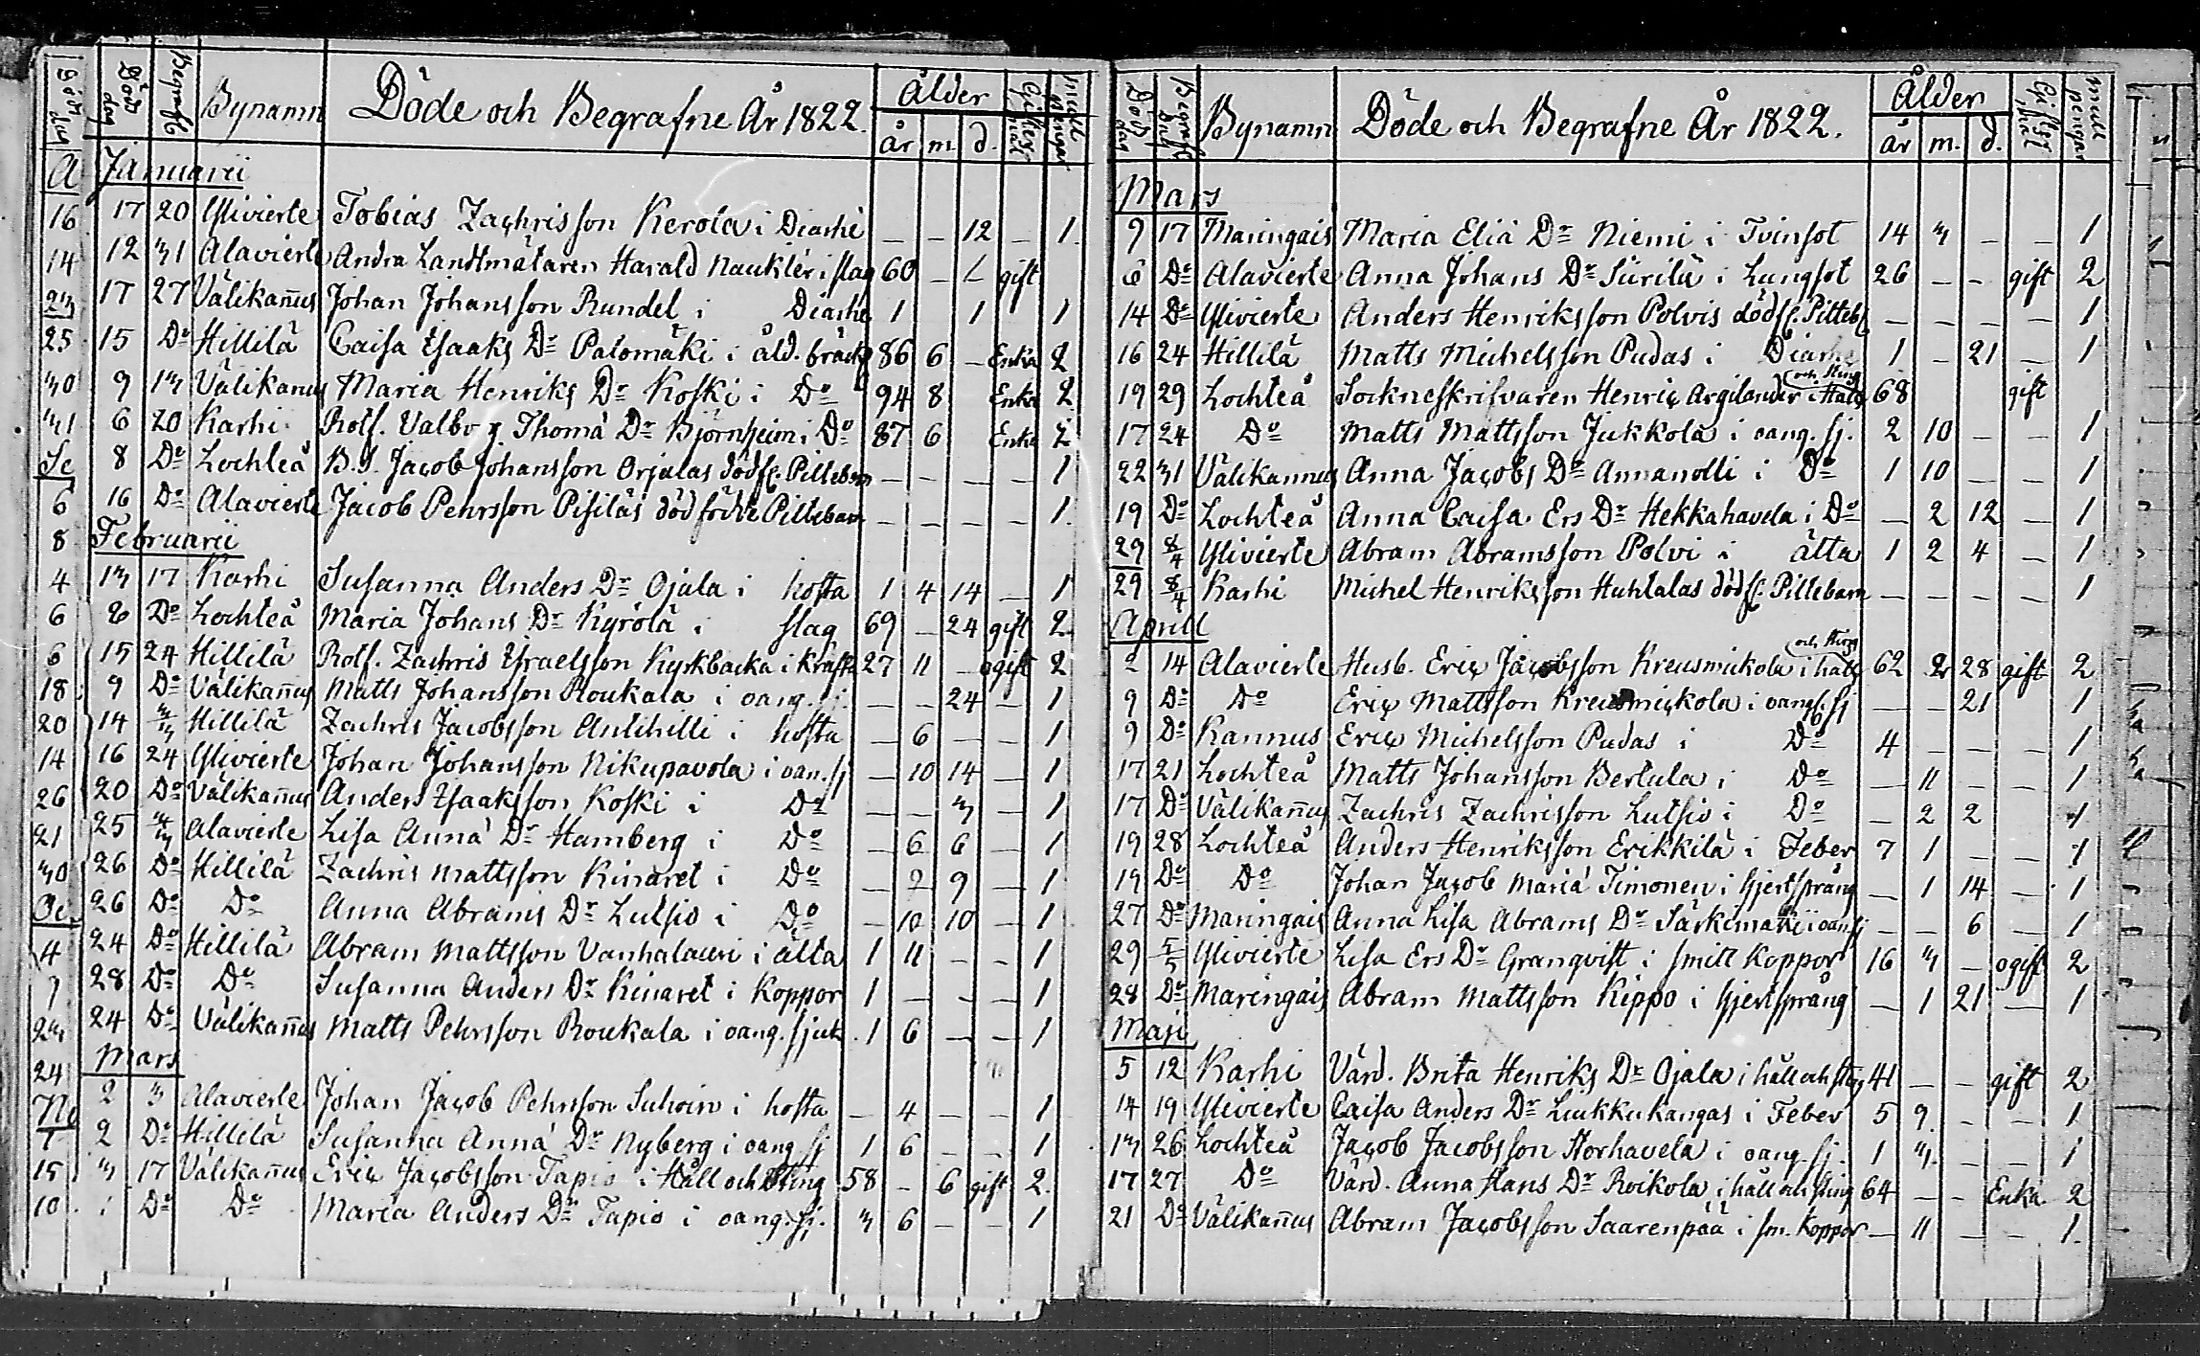 Död dag Begrafl Bynamn Döde och Begrafne År 1822. Ålder år m d. mull pengar
Januarii
17 20 Ylivierte Tobias Zachrisson Kerola i Diarhé — — 12 — 1.
12 31 Alavierte Andra Landtmätaren Harald Nauklér i slag 60 — gift
17 27 Välikan̄us Johan Johansson Rundel i Diarhé 1 1 1
15 Do Hillilä Caisa Ysaaks Dr Palomäki i åld. bräck 86 6 — Enka 2
9 13 Välikanus Maria Henriks Dr Koski i Do 94 8 Enka 2
6 20 Karhi Rotf. Valbv g. Thomä Dr Björnheim i Do 87 6 Enka 2
8 Do Lochteå B.S. Jacob Johansson Orjalas dödf. Pillebarn — — — — 1
16 Do Alavierte Jacob Pehrsson Pisiläs död födde Piltebarn — — — — 1.
Februarii
13 17 Karhi Susanna Anders Dr Ojala i hosta 1 4 14 — 1
8 Do Lochteå Maria Johans Dr Kyrölä i slag 69 — 24 gift 2
15 24 Hillilä Rotf. Zachris Ysraelsson Kyrkbacka i Kräfta 27 11 — ogift 2
9 Do Välikan̄us Matts Johansson Roukala i oang. sj. — — 24 — 1
14 3/3 Hillilä Zachris Jacobsson Antihilli i hosta — 6 — — 1
16 24 Ylivierte Johan Johansson Nikupavola i oan. sj — 10 14 — 1
20 Do Välikan̄us Anders Ysaaksson Koski i Do — — 3 — 1
25 3/3 Alavierte Lisa Annä Dr Hamberg i Do — 6 6 — 1
26 Do Hillilä Zachris Mattsson Kinaret i Do — 2 9 — 1
26 Do Do Anna Abrams Dr Lutsio i Do — 10 10 — 1
24 Do Hillilä Abram Mattsson Vanhalauri i älta 1 11 — — 1
28 Do Do Susanna Anders Dr Kinaret i Koppor 1 — — — 1
24 Do Välikan̄us Matts Pehrsson Roukala i oang. sjuk. 1 6 — — 1
Mars
2 3 Alavierte Johan Jacob Pehrsson Suhoin i hosta — 4 — — 1
2 Do Hillilä Susanna Annä Dr Nyberg i oang sj 1 6 — — 1
3 17 Välikan̄us Eric Jacobsson Tapio i Håll och Sting 58 — 6 gift 2.
1 Do Do Maria Anders Dr Tapio i oang. sj. 3 6 — — 1
A
16
14
23
25
30
31
Se
6
8
4
6
6
18
20
14
26
21
30
Oc
4
7
23
24
No
1
15
10
Död dag Begrafl Bynamn Döde och Begrafne År 1822. Ålder år m. d. mull pengar
Mars
9 17 Maringais Maria Eliä Dr Niemi i Tvinsot 14 3 — — 1
6 Do Alavierte Anna Johans Dr Sürilä i Lungsot 26 — — gift 2
14 Do Ylivierte Anders Henriksson Polvis dödf. Piltebf — — — — 1
16 24 Hillilä Matts Michelsson Pudas i Diarhe 1 — 21 — 1
19 29 Lochteå Sockneskrifvaren Henric Argilander i Håll och Sting 68 gift
17 24 Do Matts Mattsson Jukkola i oang. sj. 2 10 — — 1
22 31 Välikannus Anna Jacobs Dr Annanolli i Do 1 10 — — 1
19 Do Lochteå Anna Caisa Ers Dr Hekkahavela i Do — 2 12 — 1
29 8/4 Ylivierte Abram Abramsson Polvi i älta 1 2 4 — 1
29 8/4 Karhi Michel Henriksson Huhtalas dödf. Pillebarn — — — — 1
Aprill
2 14 Alavierte Husb. Eric Jacobsson Kreusmickola i håll och sting 62 2 28 gift 2
9 Do Do Eric Mattsson Kreusmickola i oang. sj — — 21 1
9 Do Kannus Eric Michelsson Pudas i Do 4 — — — 1
17 21 Lochteå Matts Johansson Bertula i Do — 11 — — 1
17 Do Välikan̄us Zachris Zachrisson Lutsio i Do — 2 2 1
19 28 Lochteå Anders Henriksson Erikkilä i Feber 7 1 — — 1
19 Do Do Johan Jacob Mariä Timonen i hjertsprång — 1 14 — 1
27 Do Maringais Anna Lisa Abrams Dr Särkimäki i oan sj — — 6 — 1
29 5/5 Ylivierte Lisa Ers Dr Granqvist i smitt Koppor 16 3 — ogift 2
28 Do Maringais Abram Mattsson Kippo i hjertsprång — 1 21 — 1
Maji
5 12 Karhi Värd. Brita Henriks Dr Ojala i håll och sting 41 — — gift 2
14 19 Ylivierte Caisa Anders Dr Luukkukangas i Feber 5 9 — — 1
13 26 Lochteå Jacob Jacobsson Storhavela i oang. sj. 1 3 — — 1
17 27 Do Värd. Anna Hans Dr Roikola i håll och sting 64 — — Enka 2
21 Do Välikan̄us Abram Jacobsson Saarenpää i sm. Koppor — 11 — — 1.